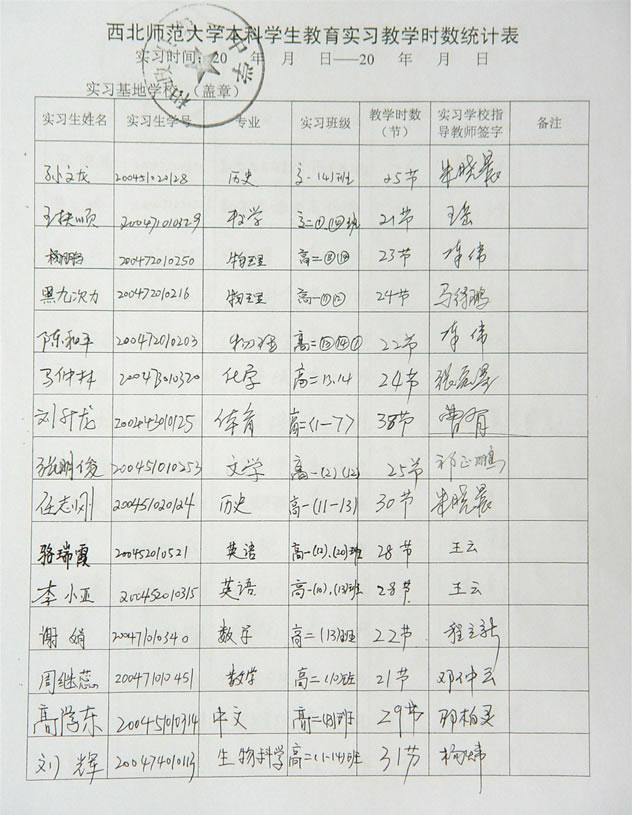 西北师范大学本科学生教育实习教学时数统计表
实习时间：20 年 月 日—20 年 月 日
中学
实习基地学校：（盖章）
实习生姓名 实习生学号 专业 实习班级 教学时数（节） 实习学校指导教师签字 备注
孙文龙 200451020128 历史 高一(4)班 25节 朱晓晨
200471010329 数学 21节 王岳
200472010250 物理 高二 23节 伟
黑九次力 200472010216 物理 高一①② 24节 马绮鹏
陈和平 200472010203 物理 高二 22节 伟
马仲林 200473010320 化学 高二13.14 24节 张
刘升龙 200443010125 体育 高二(1-7) 38节 曹
张鹏俊 200451010253 文学 高一(2)(12) 25节 祁正鹏
任志刚 200451020124 历史 高一(11-13) 30节 朱晓晨
骆瑞霞 200452010521 英语 高一(12).(20)班 28节 王云
李小亚 200452010315 英语 高一(10).(13)班 28节 王云
谢娟 200471010340 数学 高二(13)班 22节 程立新
周继蕊 200471010451 数学 高二(10)班 21节 邓仲云
高学东 200451010314 中文 高二(8)班 29节 邵柏灵
刘辉 200474010113 生物科学 高二(1-14)班 31节 杨炜